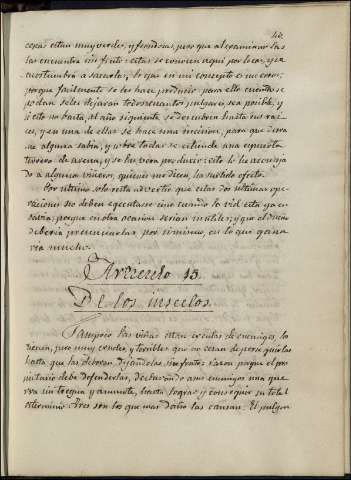 cepas estan muy verdes, y frondosas, pero que al examinarlas
las encuentra sin fruto: estas se conocen aqui por locas, y se
acostumbra a sacarlas, lo que en mi concepto es un error;
porque facilmente se les hace producir para ello cuando se
podan se les dejaran todos cuantos pulgares sea posible, y
si esto no basta, al año siguiente se descubren hasta sus rai-
ces, y en una de ellas se hace una incision, para que derra-
me alguna sabia, y sobre todas se estiende una espuerta
terrera de arena, y se las vera producir: esto lo he aconseja-
do a algunos viñeros, quienes me dicen, ha surtido efecto.
Por ultimo solo resta advertir que estas dos ultimas ope-
raciones no deben egecutarse sino cuando la vid esta ya en
savia; porque en otra ocasion serian inutiles; y que el dueño
deberia presenciarlas por si mismo, en lo que gana-
ria mucho.
Articulo 13.
De los insectos.
Tampoco las viñas estan esentas de enemigos, los
tienen, pues muy crueles y terribles que no cesan de perseguirlas
hasta que las devoran dejandolas sin fruto: razon porque el pro-
pietario debe defenderlas, declarando a sus enemigos una gue-
rra sin tregua y a muerte, hasta lograr y conseguir su total
esterminio. Tres son los que mas daño las causan. El pulgon